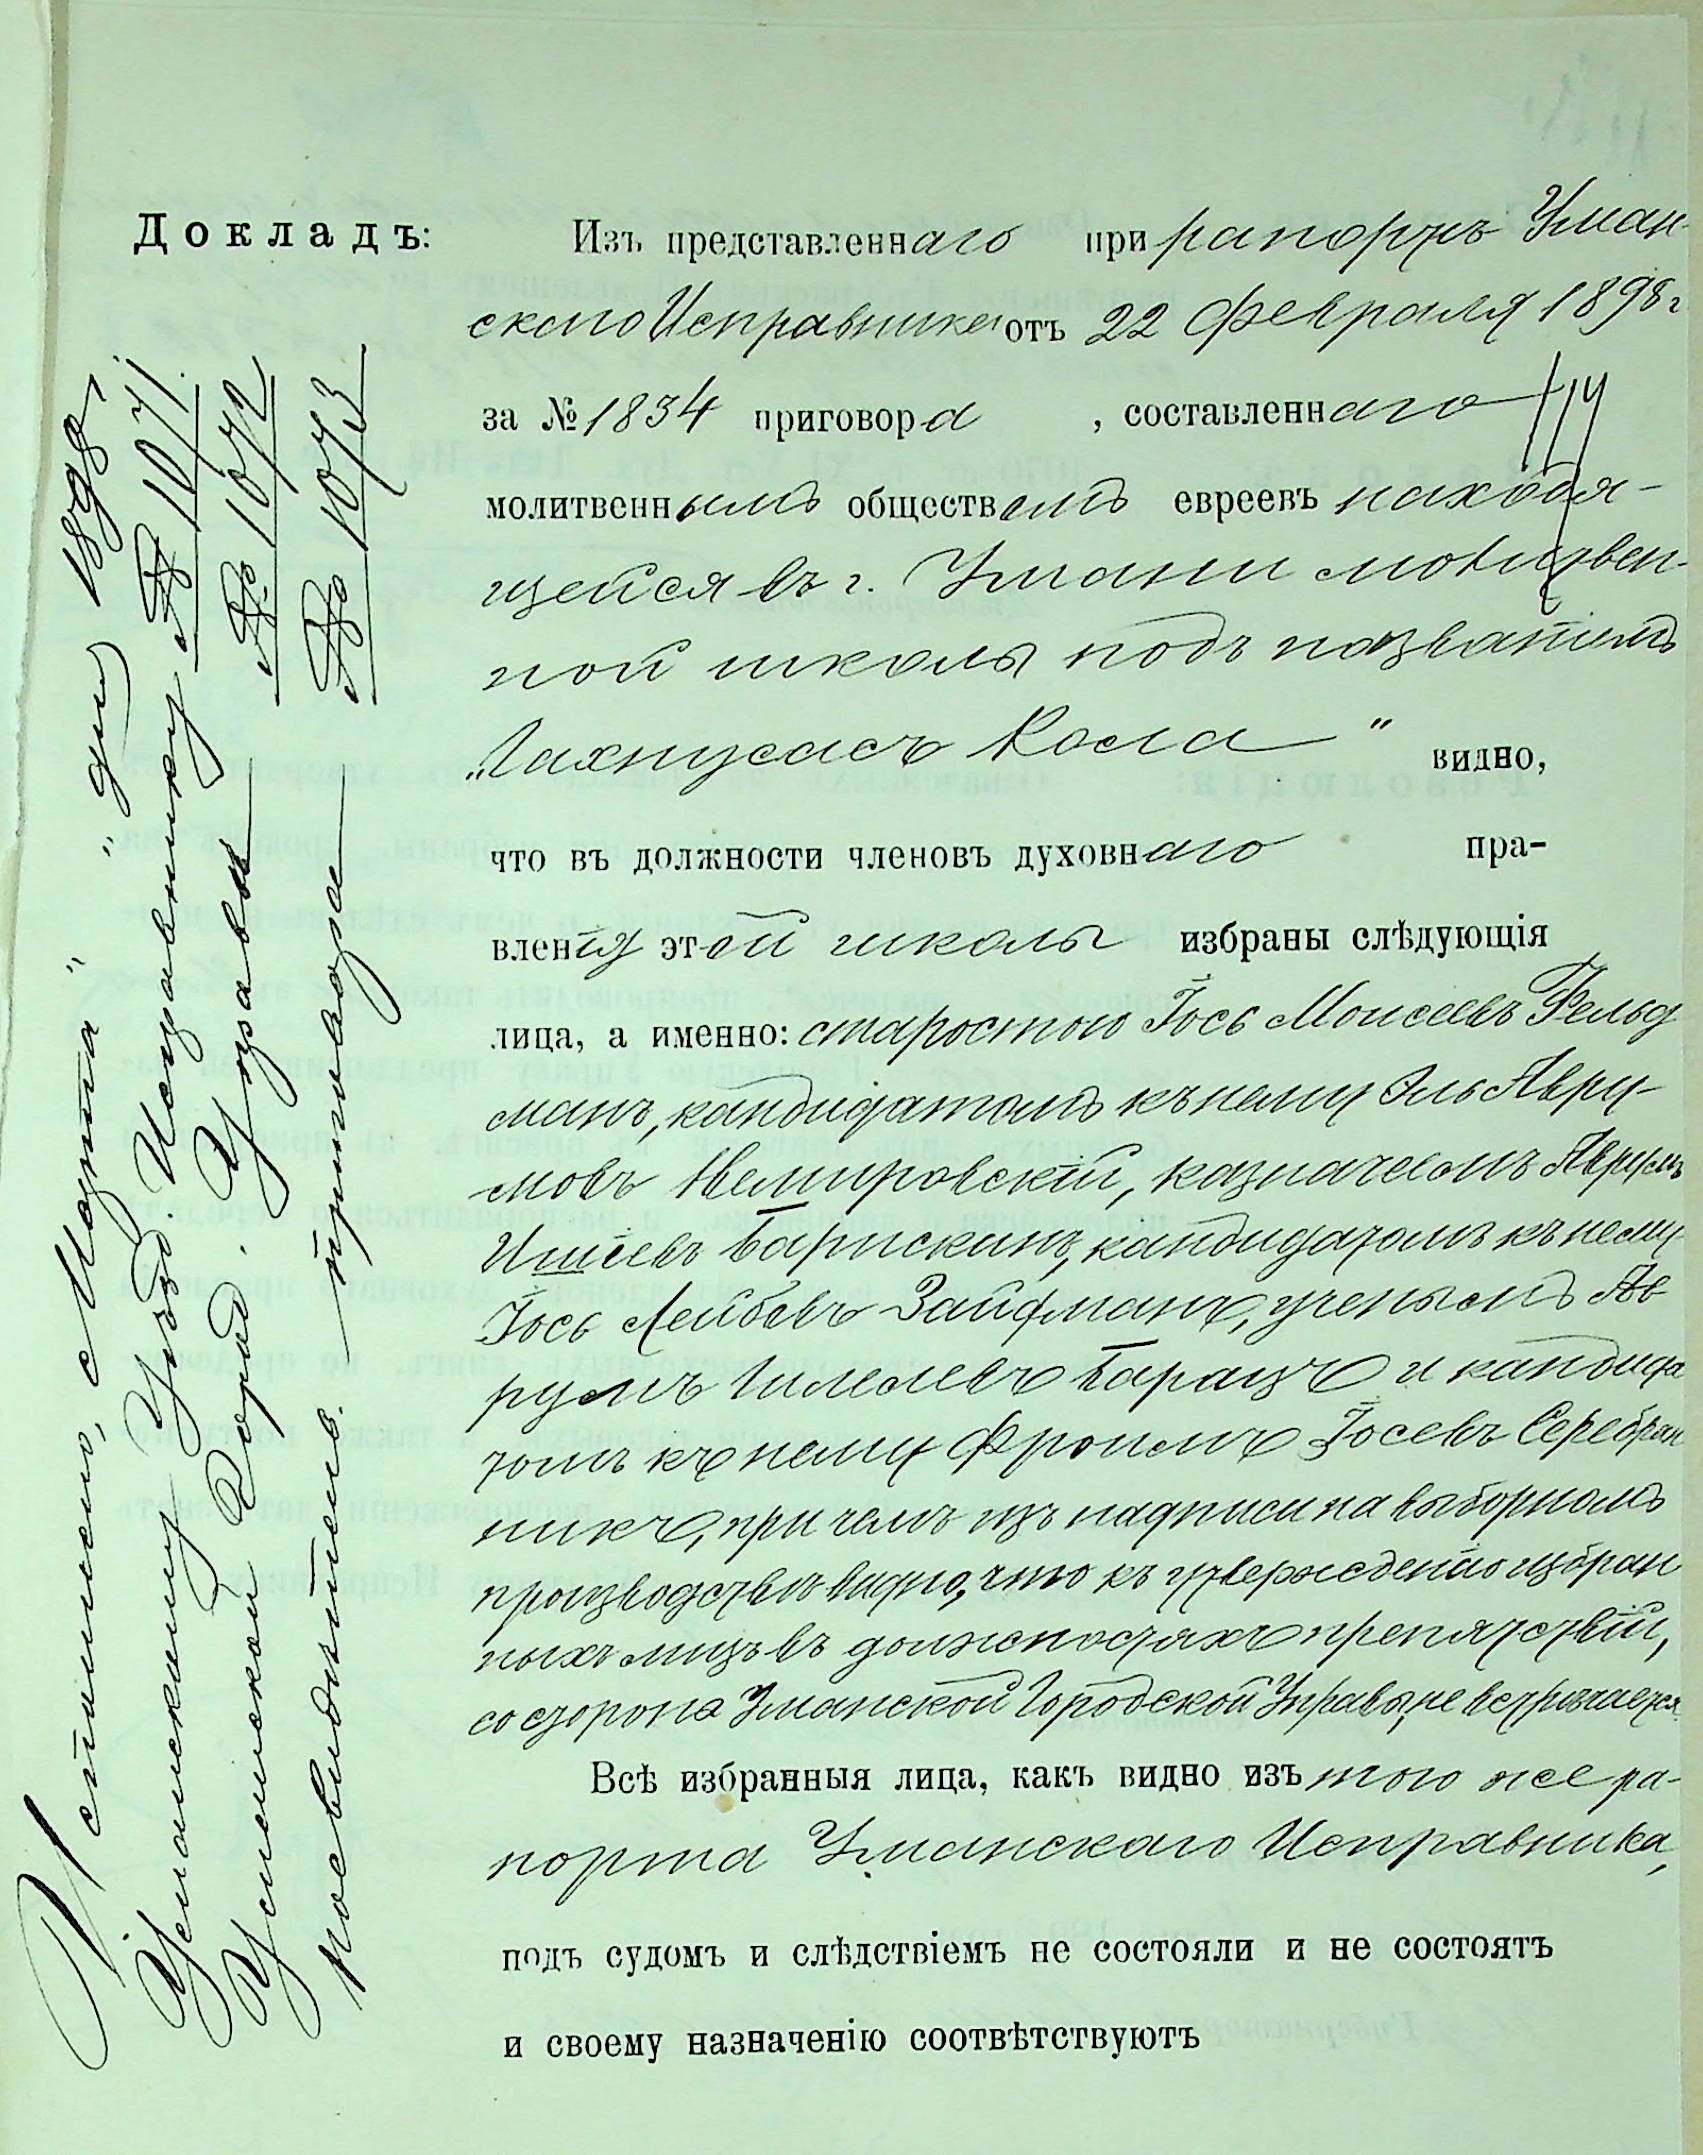 Докладъ:
Изъ представленнаго при рапортѣ Уман-
скаго Исправника отъ 22 Февраля 1898 г
за № 1834 приговора , составленнаго
молитвеннымъ обществомъ евреевъ находя-
щейся въ г. Умани молитвен-
ной школы подъ названіемъ
„Гахнусасъ Кала“ видно,
что въ должности членовъ духовнаго пра-
вленія этой школы избраны слѣдующія
лица, а именно: старостою Іось Моисеевъ Фельд
манъ, кандидатомъ къ нему Эль Авру-
мовъ Немировскій, казначеемъ Аврумъ
Ишіевъ Барискинъ, кандидатомъ къ нему
Іось Лейбовъ Зайфманъ, ученымъ Ав
румъ Гилелевъ Барацъ и кандида
томъ къ нему Фроимъ Іосевъ Серебрян
никъ, при чемъ изъ надписи на выборномъ
производствѣ видно, что къ утвержденію избран
ныхъ лицъ въ должностяхъ препятствій,
со стороны Уманской Городской Управы, не встрѣчается.
Всѣ избранныя лица, какъ видно изъ того же ра-
порта Уманскаго Исправника,
подъ судомъ и слѣдствіемъ не состояли и не состоятъ
и своему назначенію соотвѣтствуютъ
Исполнено, „ Марта „ дня 1898 г.
Уманскому Уѣзд Исправнику № 1071.
Уманской Город. Управы № 1072
№ 1073